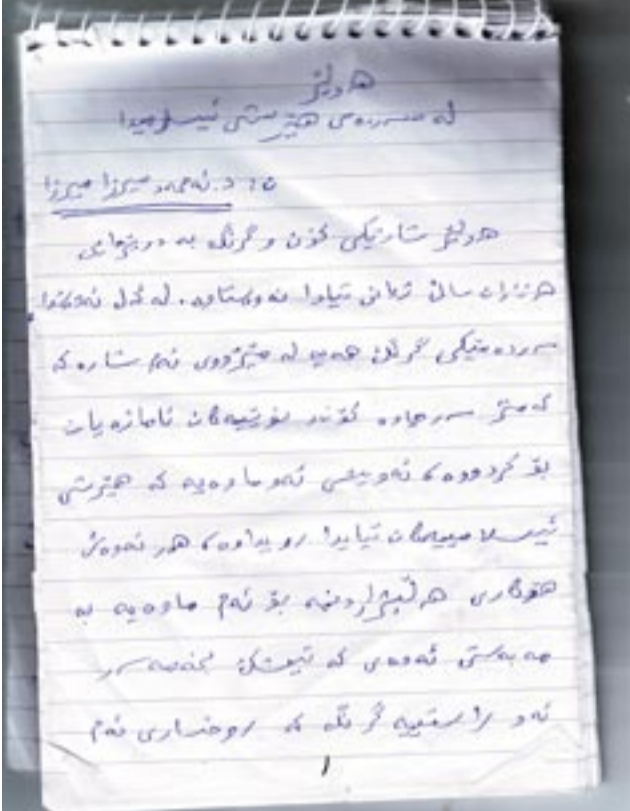 هەولێر
لە سەردەمی هێرشی ئیسلامیدا
ن: د. ئەحمەد میرزا میرزا
هەولێر شارێکی کۆن و گرنگ بە درێژایی
هەزاران ساڵ ژیانی تیادا نەوەستاوە. لە گەل ئەوەشدا
سەردەمێکی گرنگ هەیە لە مێژووی ئەم شارە کە
کەمتر سەرچاوە کۆندە نوێیەکان ئاماژەیان
بۆ کردووە، ئەویش ئەو ماوەیە کە هێرشی
ئیسلامییەکان تیایدا روویداوە، هەر ئەوەش
هۆکاری هەڵبژاردنمە بۆ ئەم ماوەیە بە
مەبەستی ئەوەی کە تیشک بخەمە سەر
ئەو راستییە گرنگە کە روخساری ئەم
١